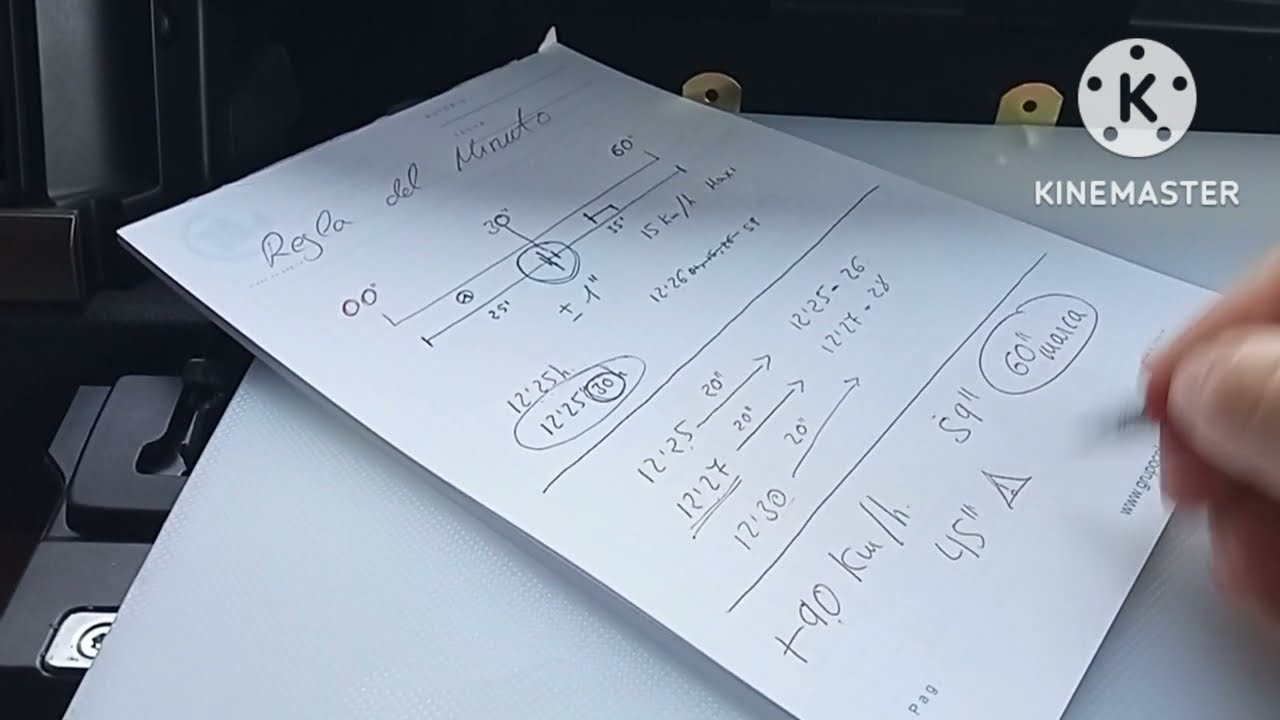 Regla del Minuto
00"
30"
60"
25'
35'
± 1"
15 Km/h Maxi
12:25h
12:25" 30 h
12:25 20" 12:25 - 26
12:27 20" 12:27 - 28
12:30 20"
+90 Km/h.
45"
59"
60" marca
www.grupo
Pag.
K
KINEMASTER